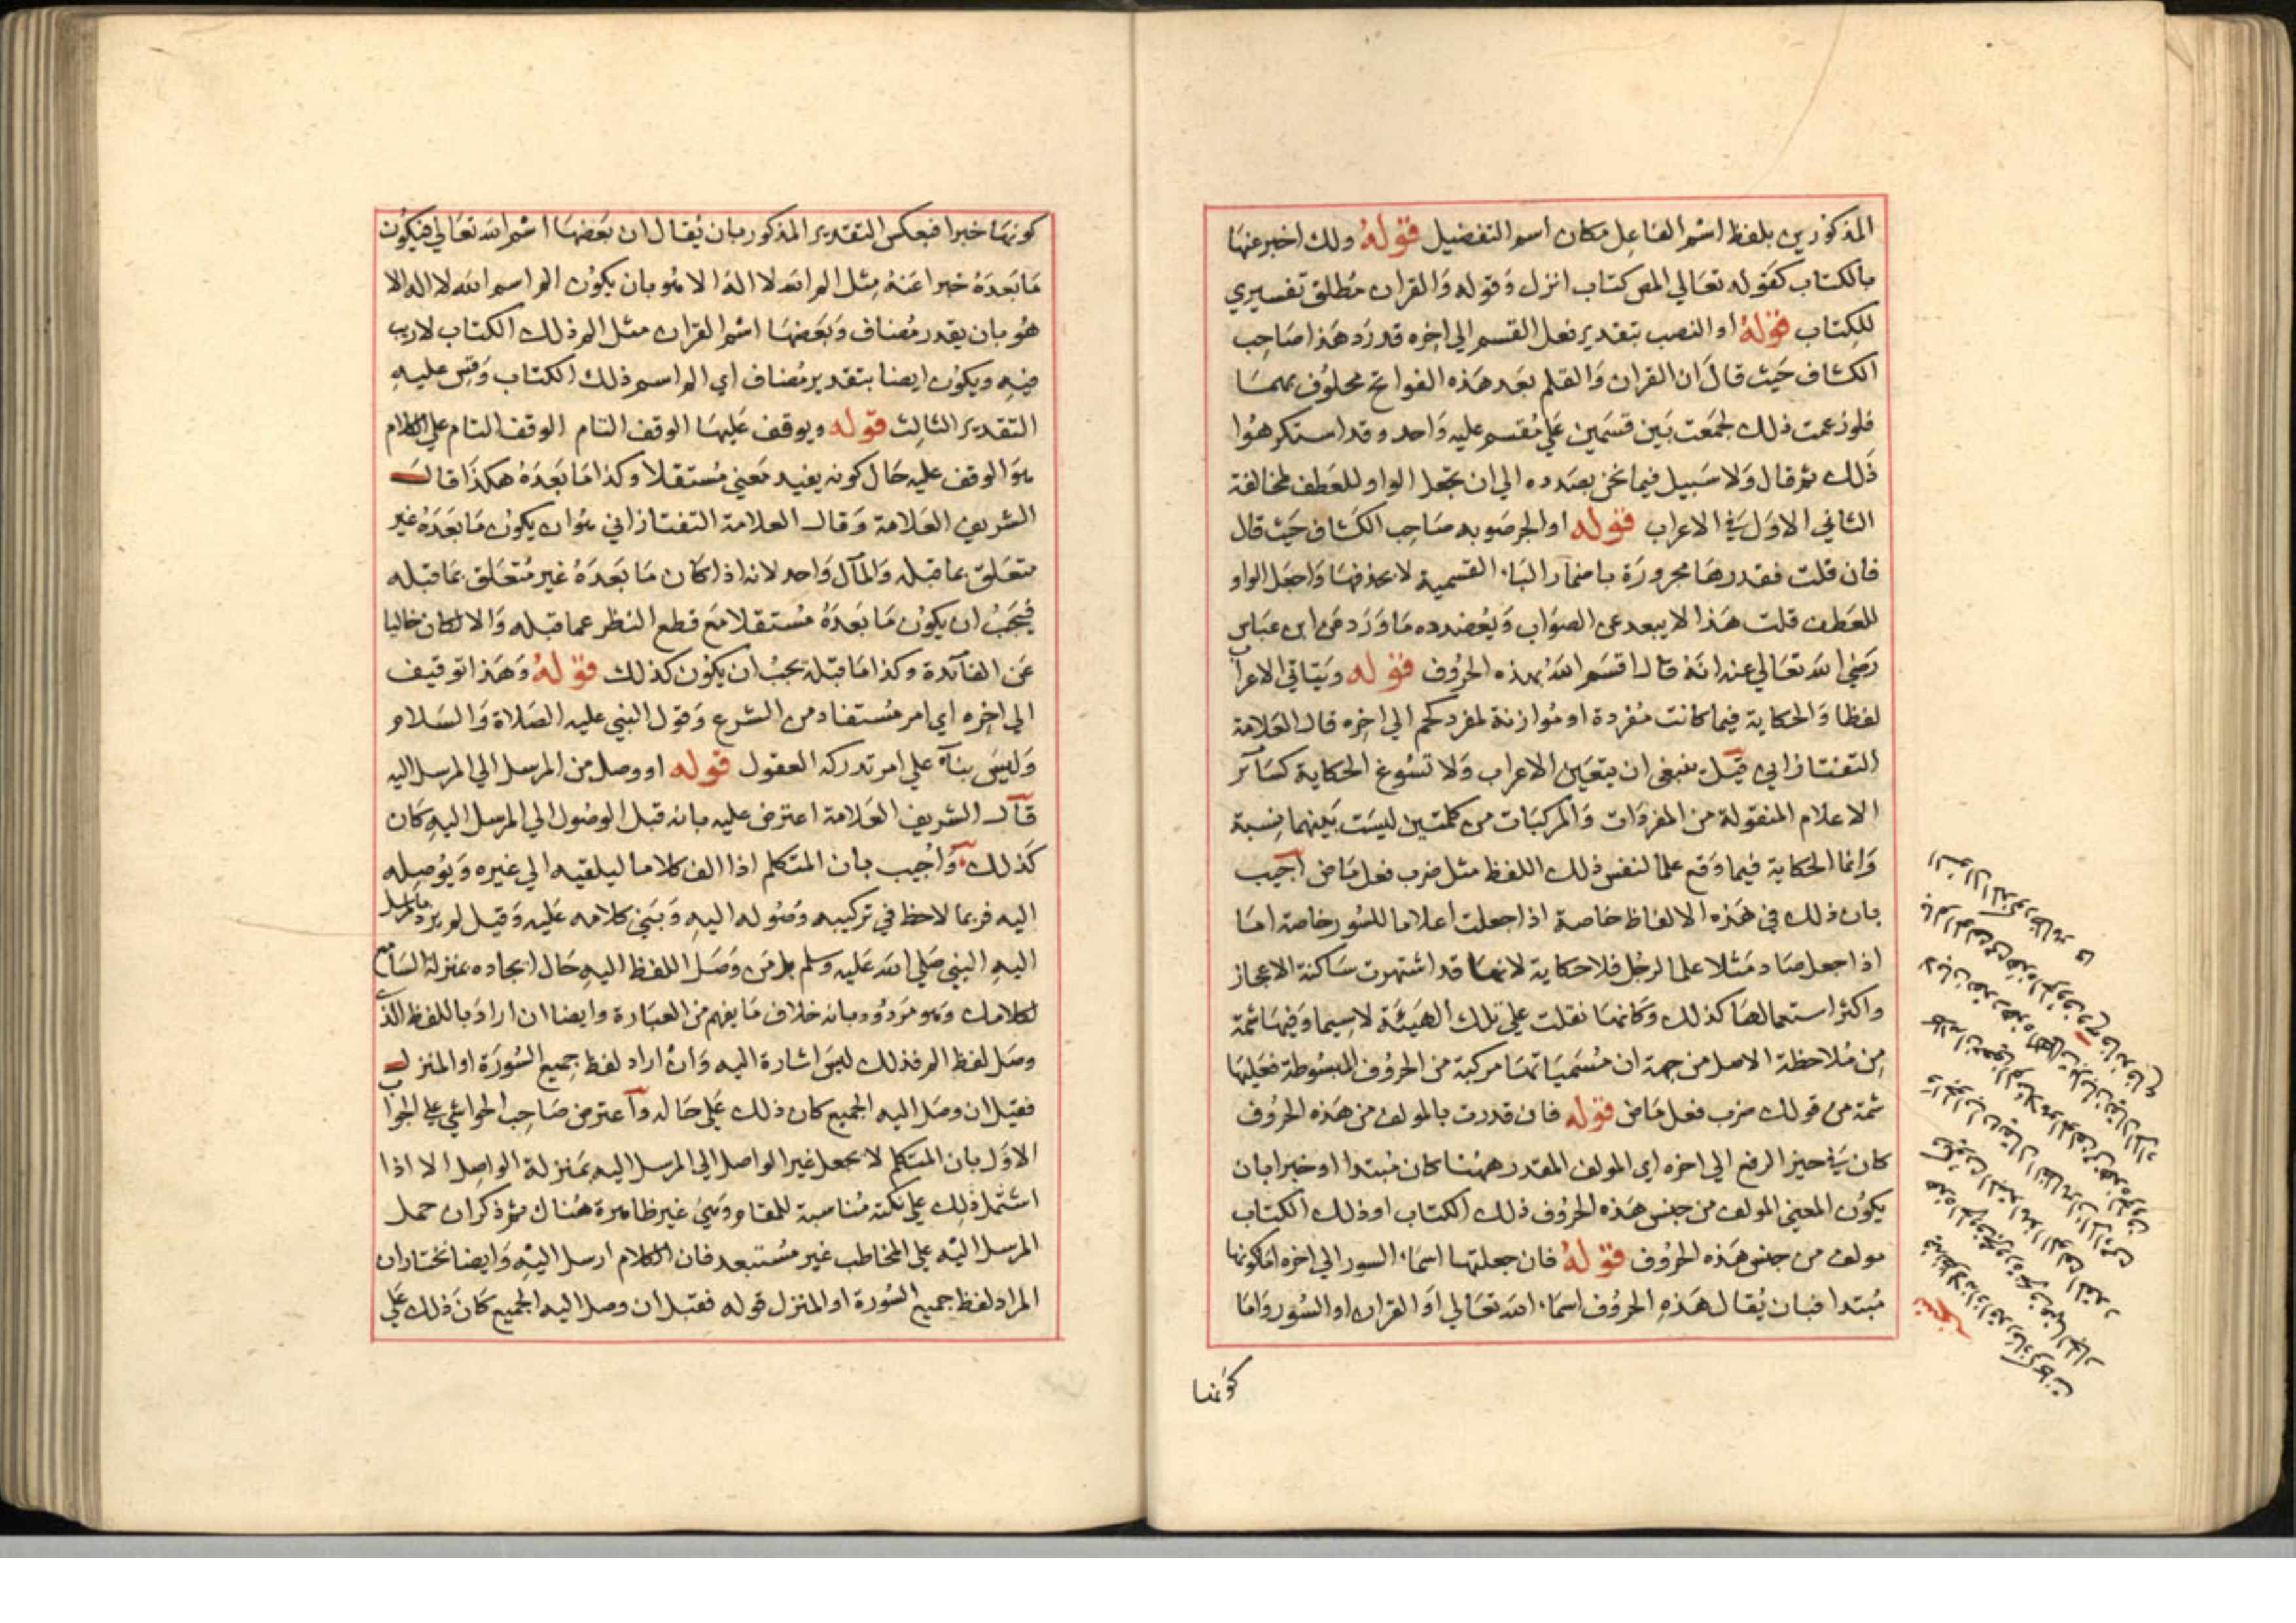 المذكورين بلفظ اسم الفاعل مكان اسم التفضيل قوله ولك اخبر عنها
بالكتاب كقوله تعالي المص كتاب انزل وقوله والقران مطلق تفسيري
للكتاب قوله او النصب بتقدير فعل القسم الي اخره قد رد هذا صاحب
الكشاف حيث قال ان القران والقلم بعد هذه الفواتح محلوف بهما
فلو زعمت ذلك لجمعت بين قسمين علي مقسم عليه واحد وقد استكرهوا
ذلك ثم قال ولا سبيل فيما نحن بصدده الي ان تجعل الواو للعطف لمخالفة
الثاني الاول في الاعراب قوله او الجر صوبه صاحب الكشاف حيث قال
فان قلت فقدرها مجرورة باضمار الباء القسمية لا بحذفها واجعل الواو
للعطف قلت هذا لا يبعد عن الصواب ويعضده ما ورد عن ابن عباس
رضي الله تعالي عنه انه قال اقسم الله بهذه الحروف قوله ويتاتي الاعراب
لفظا والحكاية فيما كانت مفردة او موازنة لمفرد كحم الي اخره قال العلامة
التفتازاني قيل ينبغي ان يتعين الاعراب ولا تسوغ الحكاية كسائر
الاعلام المنقولة من المفردات والمركبات من كلمتين ليست بينهما نسبة
وانما الحكاية فيما وقع علما لنفس ذلك اللفظ مثل ضرب فعل ماض اجيب
بان ذلك في هذه الالفاظ خاصة اذا جعلت اعلاما للسور خاصة اما
اذا جعل صاد مثلا علما لرجل فلا حكاية لانها قد اشتهرت ساكنة الاعجاز
واكثر استعمالها كذلك وكانها نقلت علي تلك الهيئة لا سيما وفيها شمة
من ملاحظة الاصل من جهة ان مسمياتها مركبة من الحروف المبسوطة فعليها
شمة من قولك ضرب فعل ماض قوله فان قدرت بالمولف من هذه الحروف
كان في حيز الرفع الي اخره اي المولف المقدر ههنا كان مبتدا او خبرا بان
يكون المعني المولف من جنس هذه الحروف ذلك الكتاب او ذلك الكتاب
مولف من جنس هذه الحروف قوله فان جعلتها اسماء السور الي اخره اما كونها
مبتدا فبان يقال هذه الحروف اسماء الله تعالي او القران او السور واما
كونها
كونها خبرا فبعكس التقدير المذكور بان يقال ان بعضها اسم الله تعالي فيكون
ما بعده خبرا عنه مثل الم الله لا اله الا هو بان يكون الم اسم الله لا اله الا
هو بان يقدر مضاف وبعضها اسم القران مثل الم ذلك الكتاب لا ريب
فيه ويكون ايضا بتقدير مضاف اي الم اسم ذلك الكتاب وقس عليه
التقدير الثالث قوله ويوقف عليها الوقف التام الوقف التام علي الكلام
هو الوقف عليه حال كونه يفيد معني مستقلا وكذا ما بعده هكذا قال
الشريف العلامة وقال العلامة التفتازاني هو ان يكون ما بعده غير
متعلق بما قبله والمآل واحد لانه اذا كان ما بعده غير متعلق بما قبله
فيجب ان يكون ما بعده مستقلا مع قطع النظر عما قبله والا لكان خاليا
عن الفائدة وكذا ما قبله يجب ان يكون كذلك قوله وهذا توقيف
الي اخره اي امر مستفاد من الشرع وقول النبي عليه الصلاة والسلام
وليس بناء علي امر تدركه العقول قوله او وصل من المرسل الي المرسل اليه
قال الشريف العلامة اعترض عليه بانه قبل الوصول الي المرسل اليه كان
كذلك واجيب بان المتكلم اذا الف كلاما ليلقيه الي غيره ويوصله
اليه فربما لاحظ في تركيبه وصوله اليه وبني كلامه عليه وقيل لم يرد بالمرسل
اليه النبي صلي الله عليه وسلم بل من وصل اللفظ اليه حال ايجاده بمنزلة السامع
لكلامك وهو مردود بانه خلاف ما يفهم من العبارة وايضا ان اراد باللفظ الذي
وصل لفظ الم فذلك ليس اشارة اليه وان اراد لفظ جميع السورة او المنزل
فقبل ان وصل اليه الجميع كان ذلك علي حاله واعترض صاحب الحواشي علي الجواب
الاول بان المتكلم لا يجعل غير الواصل الي المرسل اليه بمنزلة الواصل الا اذا
اشتمل ذلك علي نكتة مناسبة للمقام وهي غير ظاهرة هناك ثم ذكر ان حمل
المرسل اليه علي المخاطب غير مستبعد فان الكلام ارسل اليه وايضا نختار ان
المراد لفظ جميع السورة او المنزل قوله فقبل ان وصل اليه الجميع كان ذلك علي